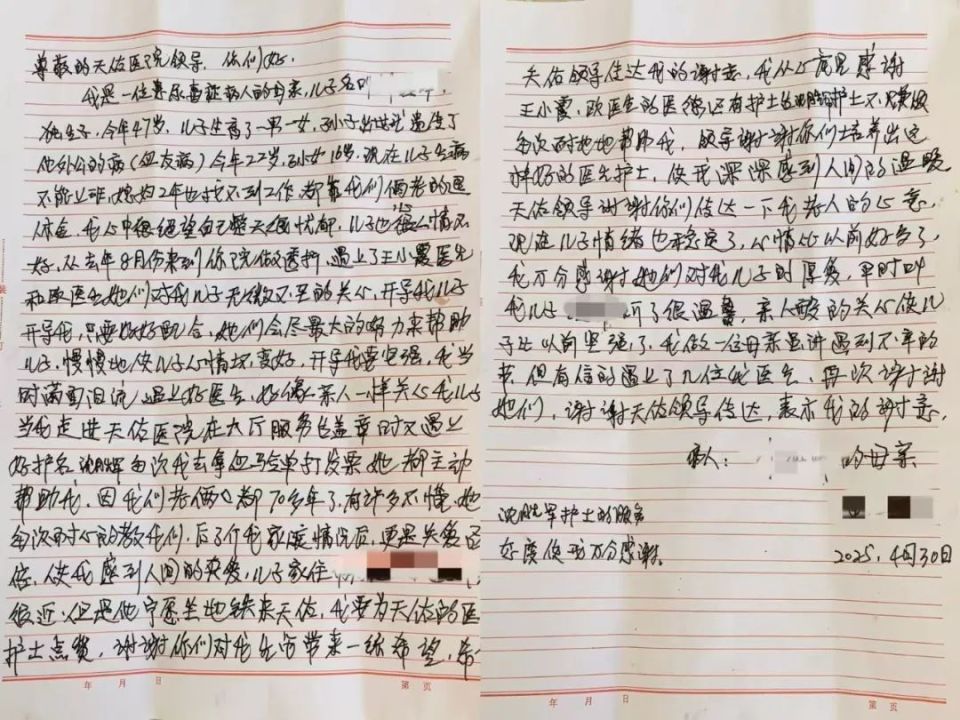 尊敬的天佑医院领导、你们好、
我是一位患尿毒症病人的母亲,儿子名叫
独生子,今年47岁,儿子生育了一男一女,孙子出世遗传了
他外公的病(血友病)今年22岁,孙女16岁,现在儿子生病
不能上班,媳妇2年也找不到工作,都靠我们俩老的退
休金,我心中很绝望自己整天很忧郁,儿子也很心情不
好,从去年8月份来到你院做透析,遇上了王小霞医生
和欧医生她们对我儿子无微不至的关心,开导我儿子
开导我,只要好好配合,她们会尽最大的努力来帮助
儿子,慢慢地使儿子心情坏变好,开导我要坚强,我当
时满面泪流遇上好医生,好像亲人一样关心我儿子
当我走进天佑医院在大厅服务台盖章时又遇上
好护名沈胜辉每次我去拿血验单打发票她都主动
帮助我,因我们老俩口都70多年了,有许多不懂,她
每次耐心的教我们,后了介我家庭情况后,更是关爱
倍,使我感到人间的爱,儿子家住
很近,但是他宁愿坐地铁来天佑,我要为天佑的医
护士点赞,谢谢你们对我生活带来一缕希望,希
天佑领导传达我的谢意,我从心底里感谢
王小霞,欧医生的医德,还有护士护士不
每次耐地帮助我,领导谢谢你们培养出这
样好的医生护士,使我深深感到人间的温暖
天佑领导谢谢你们传达一下我老人的心意
现在儿子情绪也稳定了,心情比以前好多了
我万分感谢她们对我儿子的厚爱,平时叫
我儿子 听了很温馨,亲人般的关心使儿
子比以前坚强了,我做一位母亲虽讲遇到不幸的
事,但有信的遇上了几位我医生,再次谢谢
她们,谢谢天佑领导传达,表示我的谢意,
病人: 的母亲
沈胜军护士的服务
好度使我万分感谢。
2025.4月30日
年 月 日 第 页
年 月 日 第 页